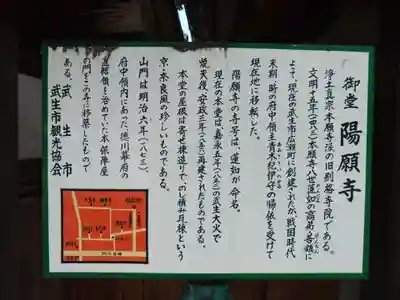 御堂 陽願寺
浄土真宗本願寺派の旧別格寺院である。
文明十五年(一四八三)本願寺八世蓮如の高弟・善鎮に
よって、現在の武生市広瀬町に創建されたが、戦国時代
末期、時の府中領主青木紀伊守の帰依を受けて
現在地に移転した。
陽願寺の寺号は、蓮如が命名。
現在の本堂は、嘉永五年(一八五二)の武生大火で
焼失後、安政三年(一八五六)再建されたものである。
本堂の屋根は寄せ棟造りで、のし積み耳棟という
京・奈良風の珍しいものである。
山門は明治六年(一八七三)
府中領内にあった徳川幕府の
直轄領を治めていた本保陣屋
の門をこの寺に移築したもので
ある。
武生市
武生市観光協会